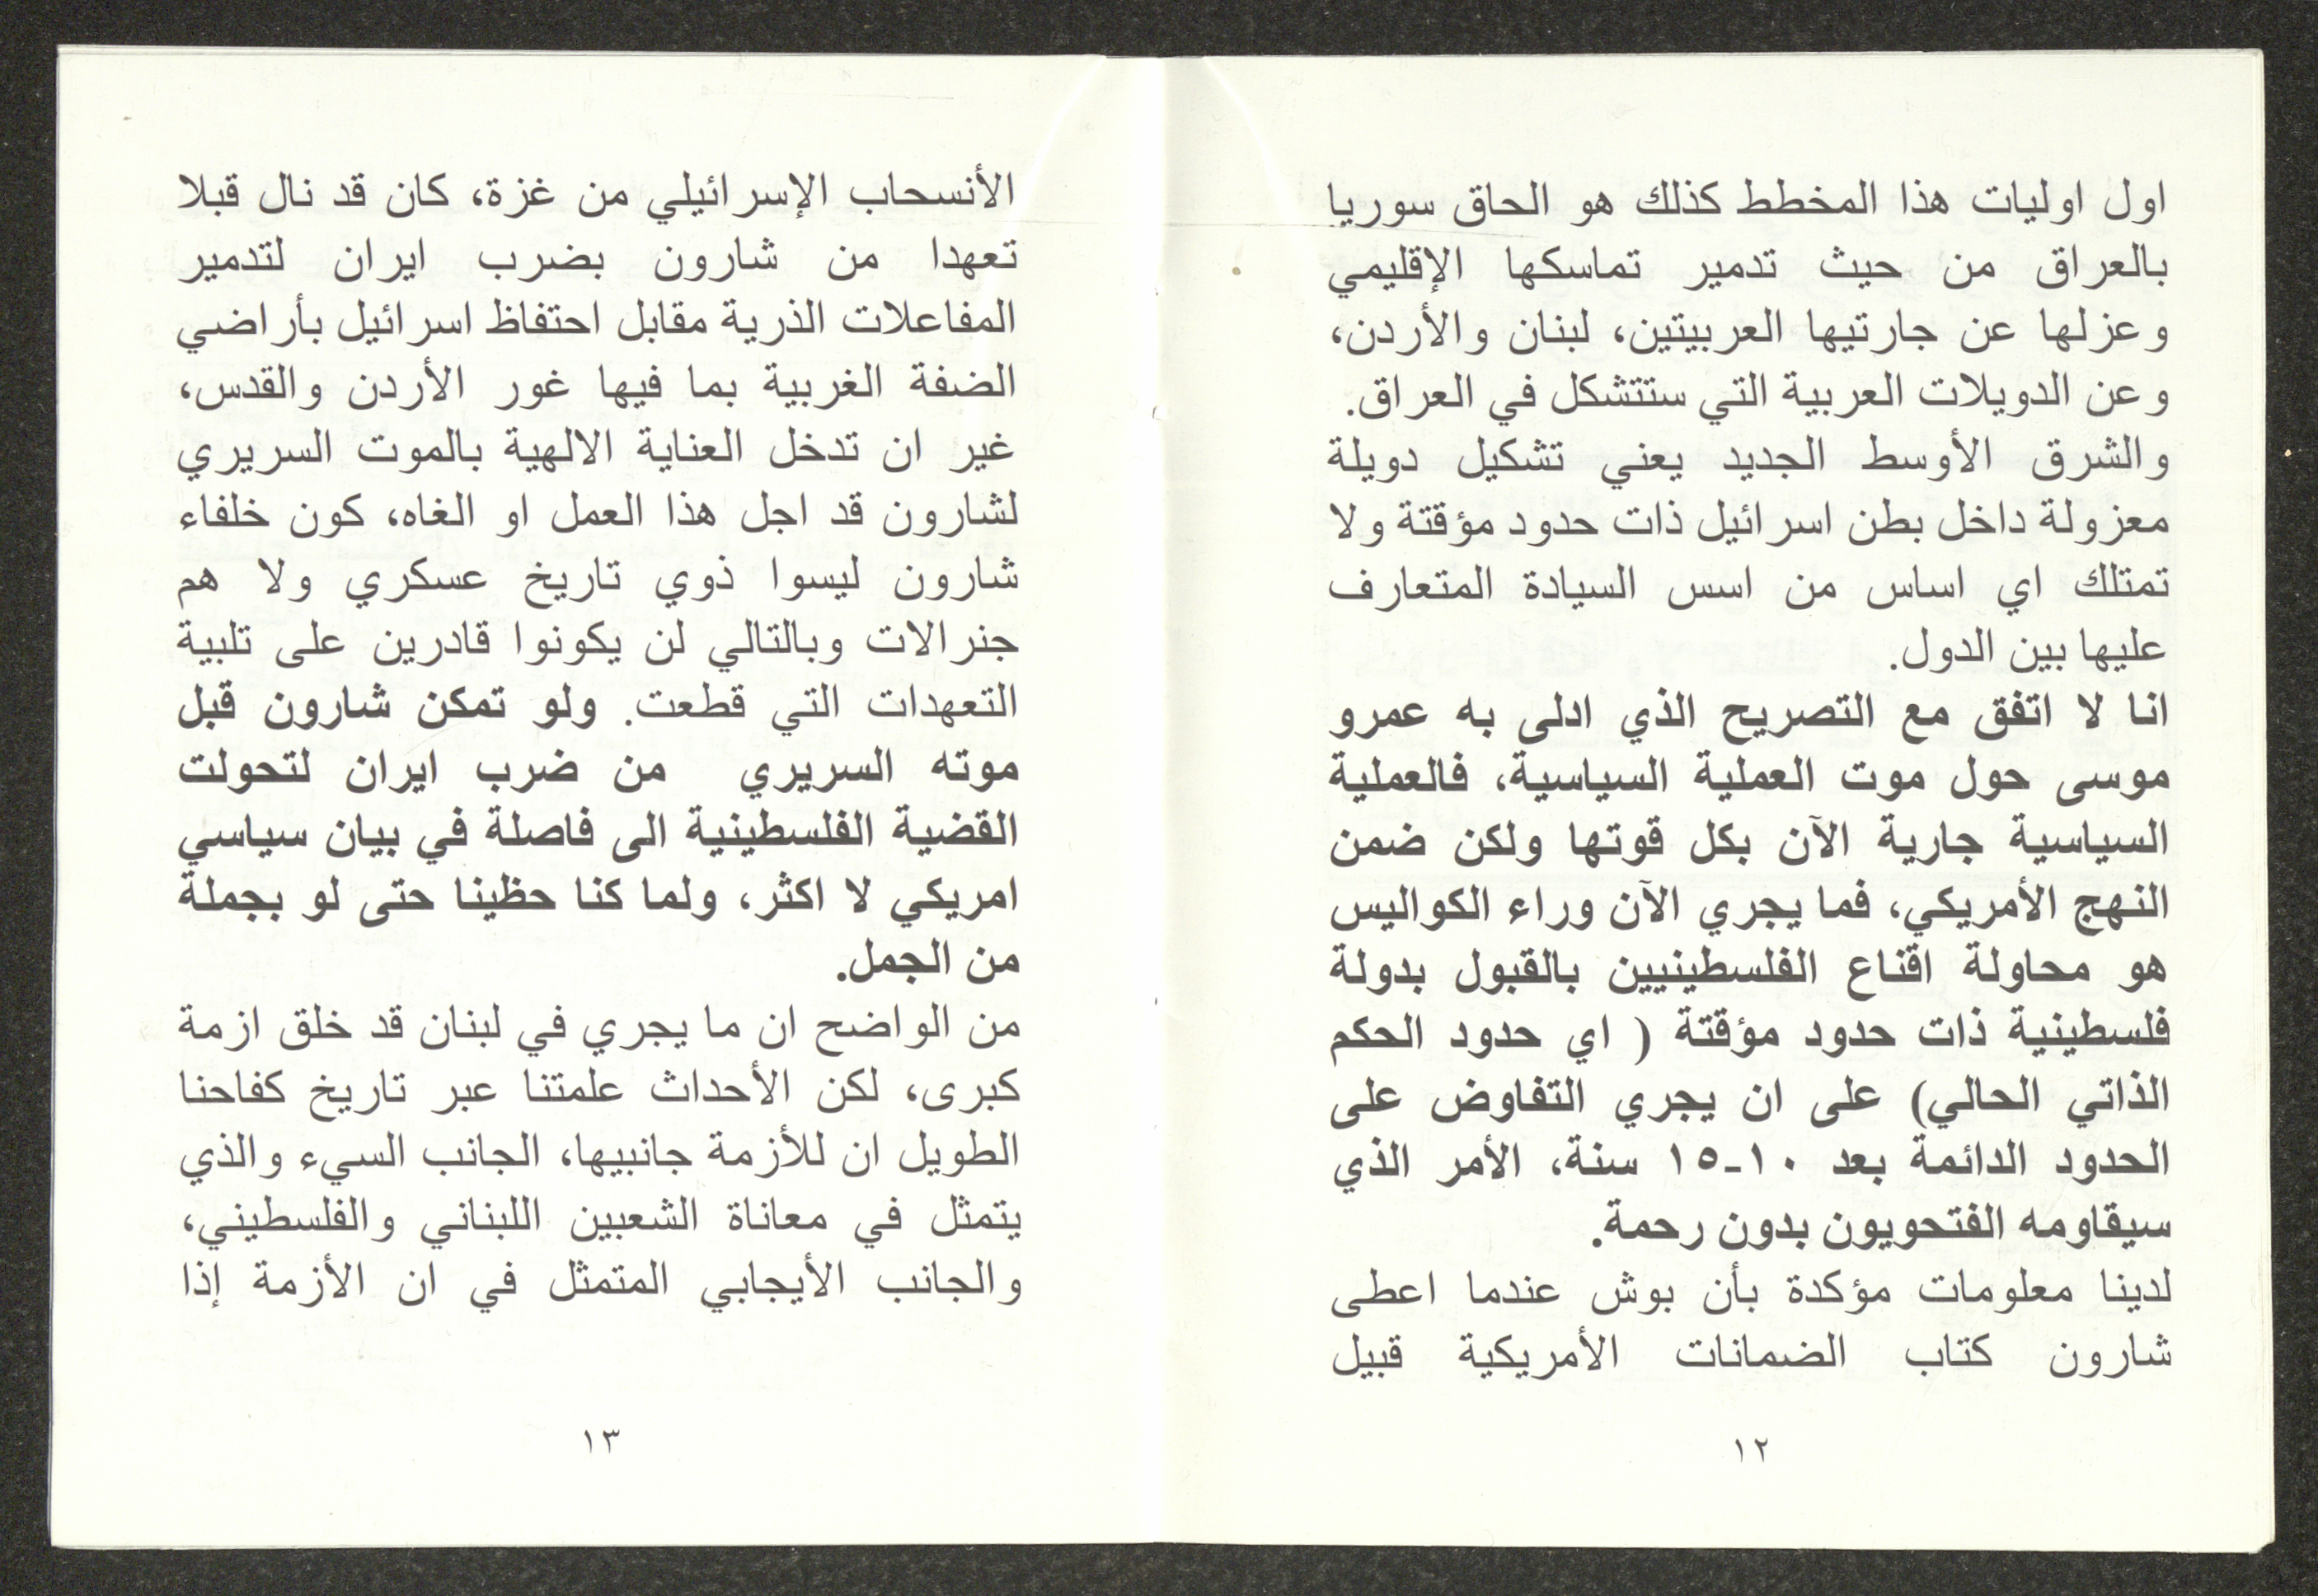 اول اوليات هذا المخطط كذلك هو الحاق سوريا
بالعراق من حيث تدمير تماسكها الإقليمي
وعزلها عن جارتيها العربيتين، لبنان والأردن،
وعن الدويلات العربية التي ستتشكل في العراق.
والشرق الأوسط الجديد يعني تشكيل دويلة
معزولة داخل بطن اسرائيل ذات حدود مؤقتة ولا
تمتلك اي اساس من اسس السيادة المتعارف
عليها بين الدول.
انا لا اتفق مع التصريح الذي ادلى به عمرو
موسى حول موت العملية السياسية، فالعملية
السياسية جارية الآن بكل قوتها ولكن ضمن
النهج الأمريكي، فما يجري الآن وراء الكواليس
هو محاولة اقناع الفلسطينيين بالقبول بدولة
فلسطينية ذات حدود مؤقتة ( اي حدود الحكم
الذاتي الحالي) على ان يجري التفاوض على
الحدود الدائمة بعد ١٠-١٥ سنة، الأمر الذي
سيقاومه الفتحويون بدون رحمة.
لدينا معلومات مؤكدة بأن بوش عندما اعطى
شارون كتاب الضمانات الأمريكية قبيل
١٢
الأنسحاب الإسرائيلي من غزة، كان قد نال قبلا
تعهدا من شارون بضرب ايران لتدمير
المفاعلات الذرية مقابل احتفاظ اسرائيل بأراضي
الضفة الغربية بما فيها غور الأردن والقدس،
غير ان تدخل العناية الالهية بالموت السريري
لشارون قد اجل هذا العمل او الغاه، كون خلفاء
شارون ليسوا ذوي تاريخ عسكري ولا هم
جنرالات وبالتالي لن يكونوا قادرين على تلبية
التعهدات التي قطعت. ولو تمكن شارون قبل
موته السريري من ضرب ايران لتحولت
القضية الفلسطينية الى فاصلة في بيان سياسي
امريكي لا اكثر، ولما كنا حظينا حتى لو بجملة
من الجمل.
من الواضح ان ما يجري في لبنان قد خلق ازمة
كبرى، لكن الأحداث علمتنا عبر تاريخ كفاحنا
الطويل ان للأزمة جانبيها، الجانب السيء والذي
يتمثل في معاناة الشعبين اللبناني والفلسطيني،
والجانب الأيجابي المتمثل في ان الأزمة إذا
١٣